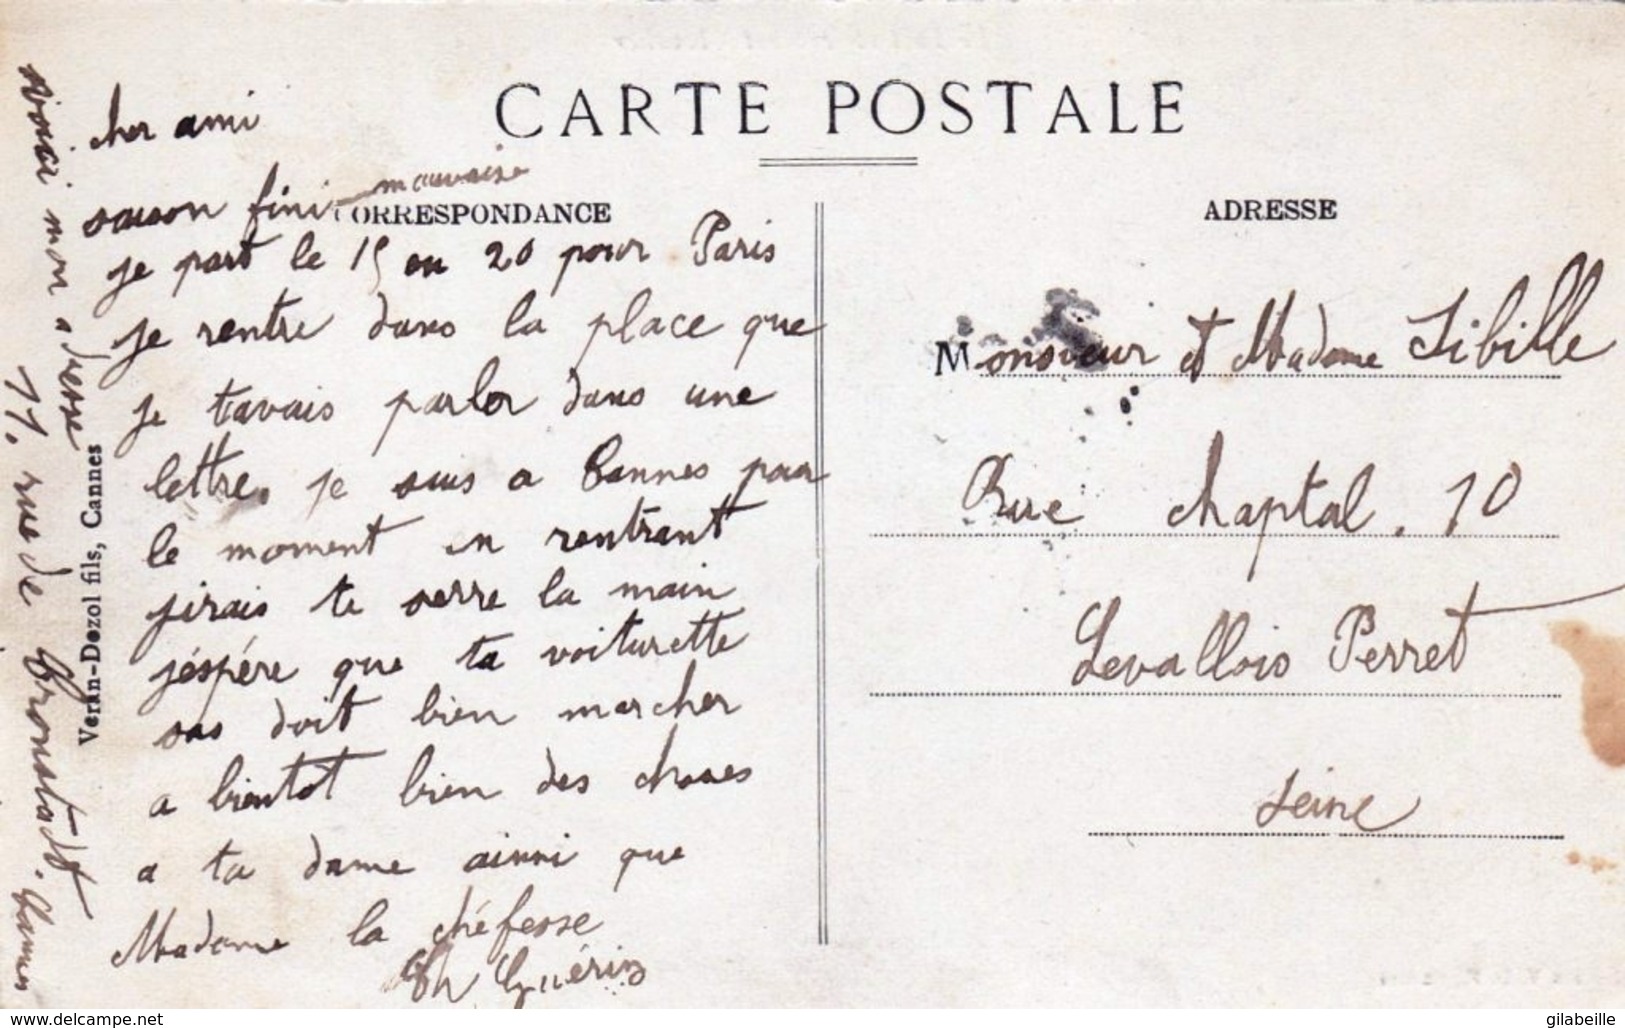 CARTE POSTALE
CORRESPONDANCE
ADRESSE
cher ami
saison fini mauvaise
je part le 15 ou 20 pour Paris
je rentre dans la place que
je tavais parler dans une
lettre. je suis a Cannes pour
le moment en rentrant
jirais te serre la main
j'éspére que ta voiturette
sas doit bien marcher
a bientot bien des choses
a ta dame ainsi que
Madame la chéfesse
Ch Guérin
Voici mon adresse
11. rue de Cronstadt. Cannes
Veran-Dozol fils, Cannes
Monsieur et Madame Sibille
Rue Chaptal. 10
Levallois Perret
Seine
www.delcampe.net
gilabeille